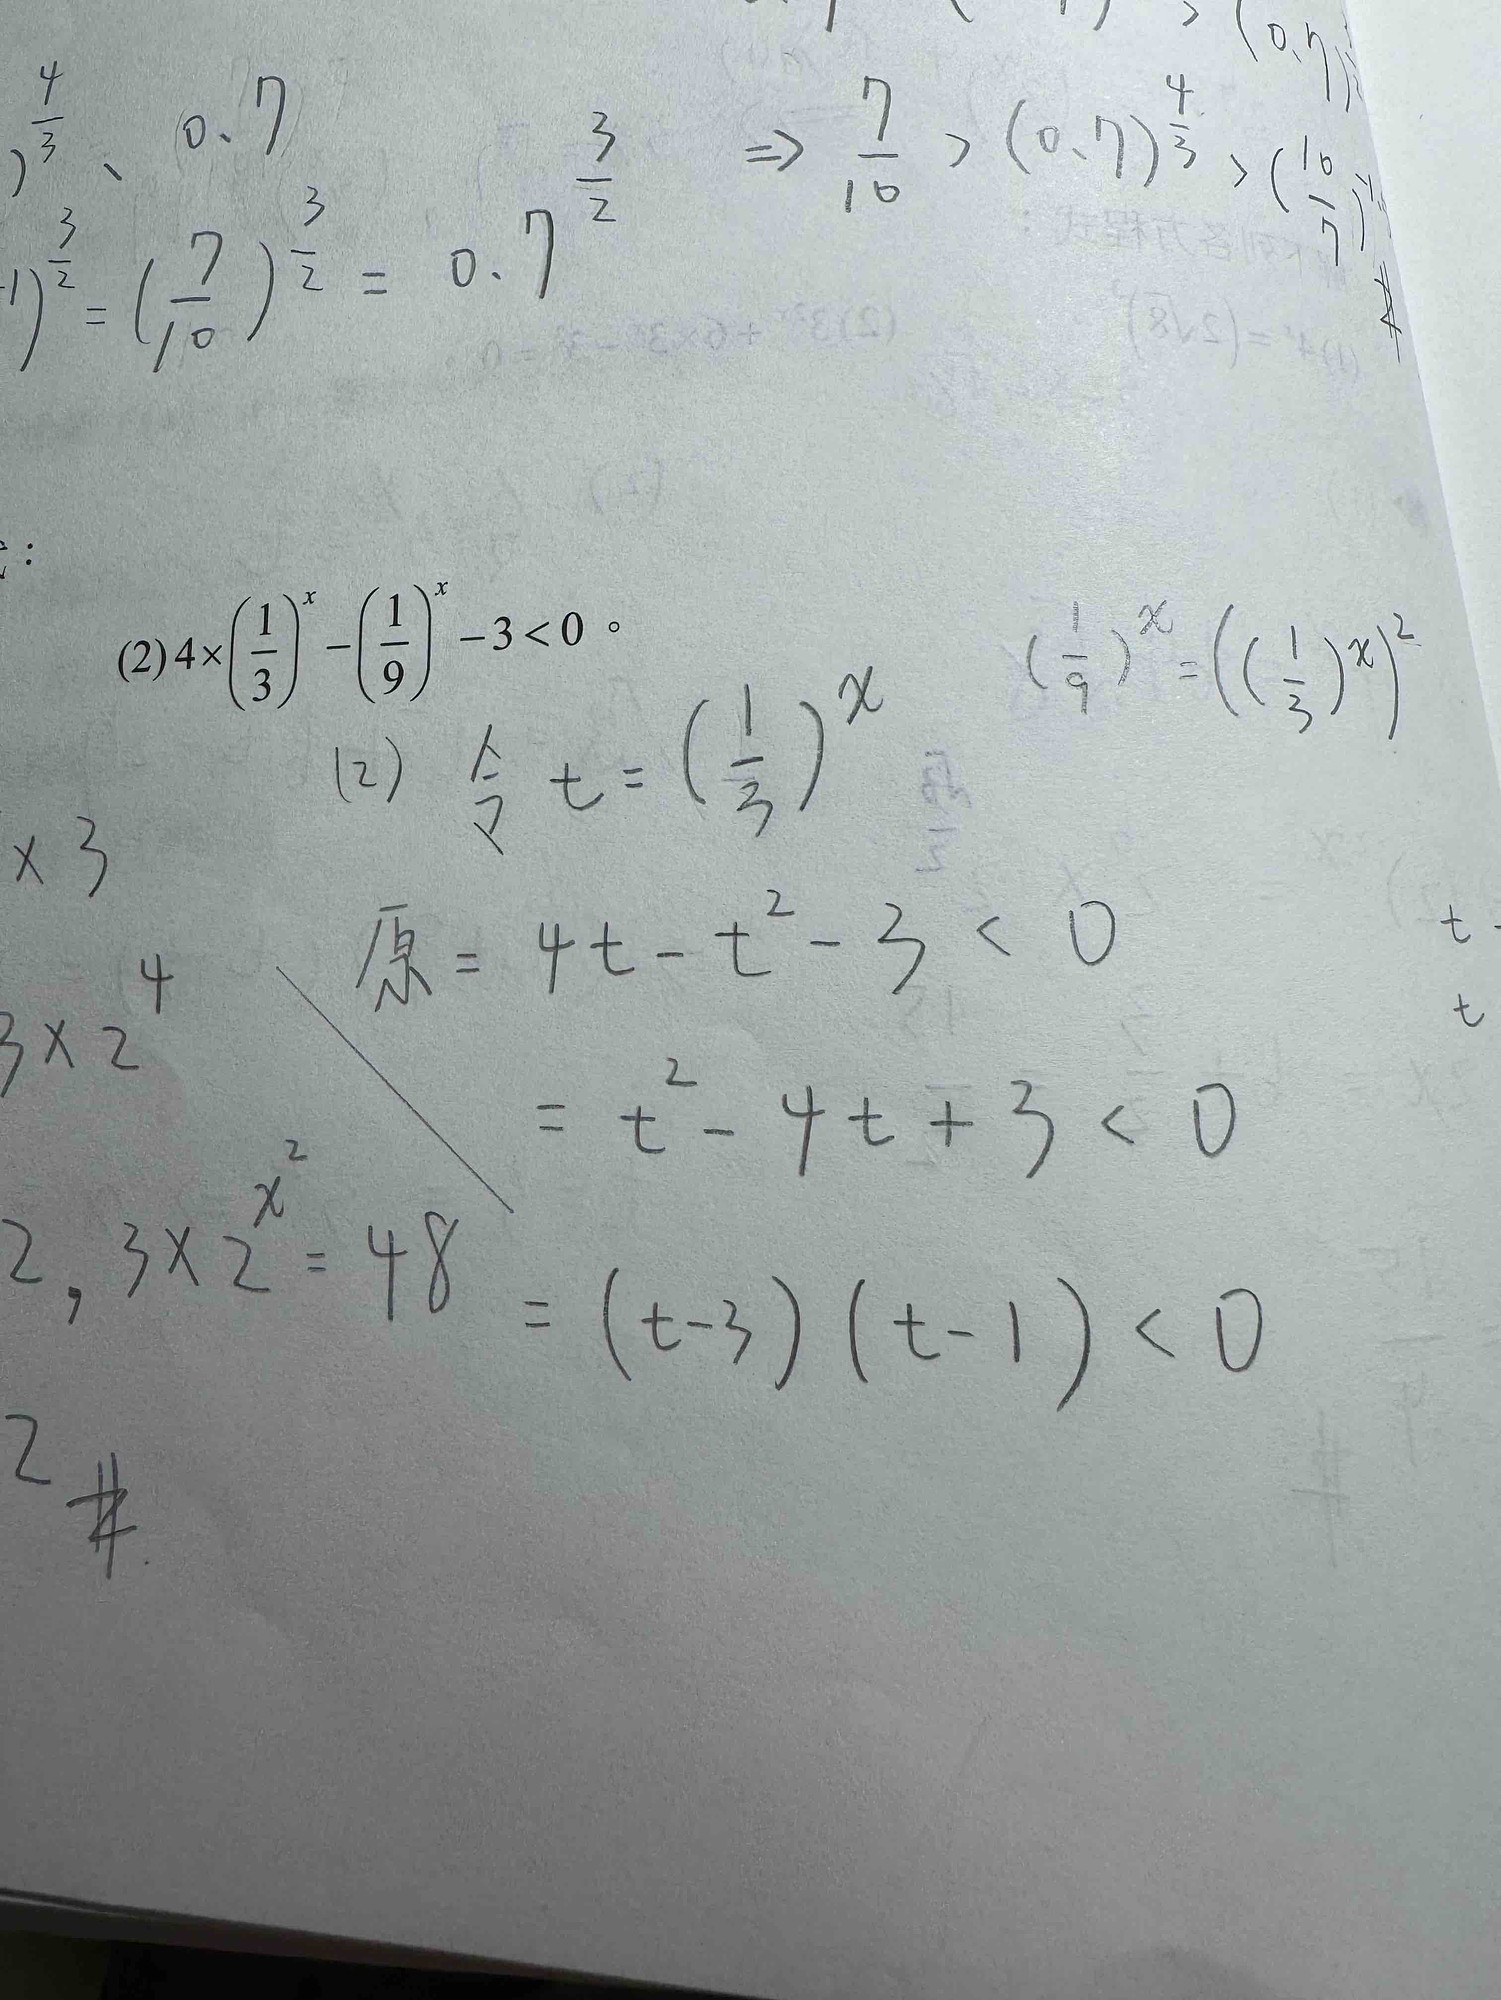 (0.7
4/3
)^(4/3)、0.7^(3/2) ⇒ 7/10 > (0.7)^(4/3) > (10/7)
)^(3/2) = (7/10)^(3/2) = 0.7
:
(2) 4×(1/3)^x −(1/9)^x −3<0。
(1/9)^x = ((1/3)^x)^2
(2) 令 t = (1/3)^x
×3
原 = 4t − t^2 − 3 < 0
t
3×2^4
t
= t^2 − 4t + 3 < 0
2, 3×2^(x^2) = 48
= (t−3)(t−1) < 0
2 #